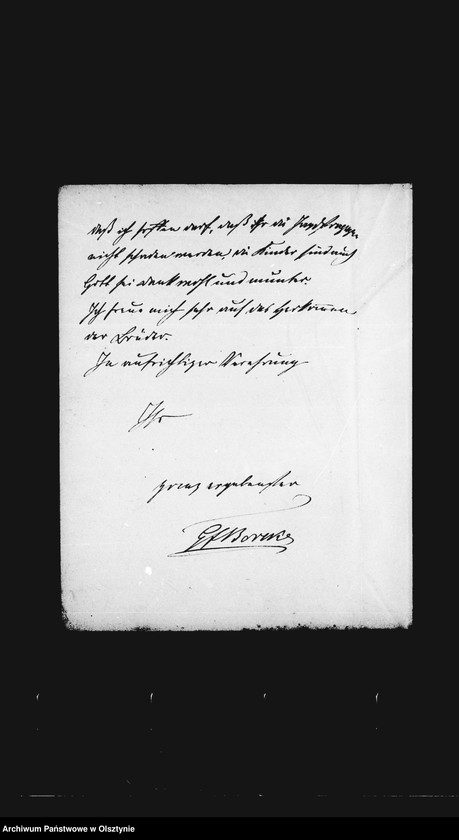 daß ich hoffen darf, daß ihr die
nicht schaden werden, die Kinder sind auch
Gott sei dank wohl und munter.
Ich freue mich sehr auf das Herkommen
der Brüder.
In aufrichtiger Verehrung
Ihr
ganz ergebenster
GfBorcke
Archiwum Państwowe w Olsztynie